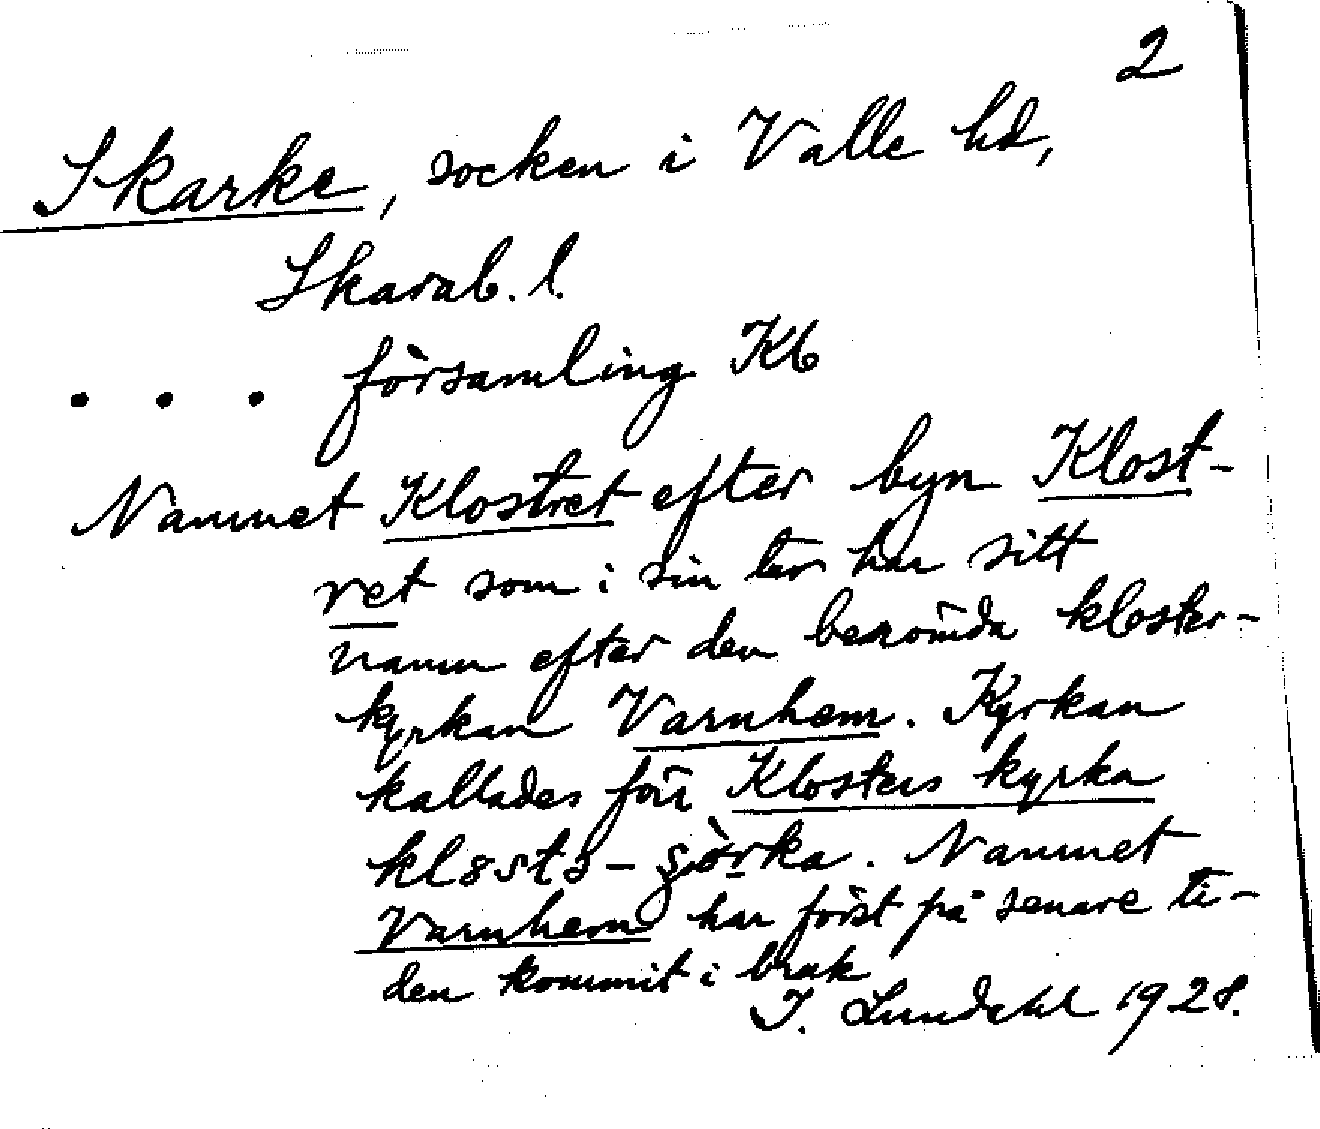 2
Skarke, socken i Valle hd,
Skarab. l.
. . . församling Kb
Namnet Klostret efter byn Klost-
ret som i sin tur har sitt
namn efter den berömda kloster-
kyrkan Varnhem. Kyrkan
kallades förr Klosters kyrka
Namnet
Varnhem har först på senare ti-
den kommit i bruk
I. Lundahl 1928.